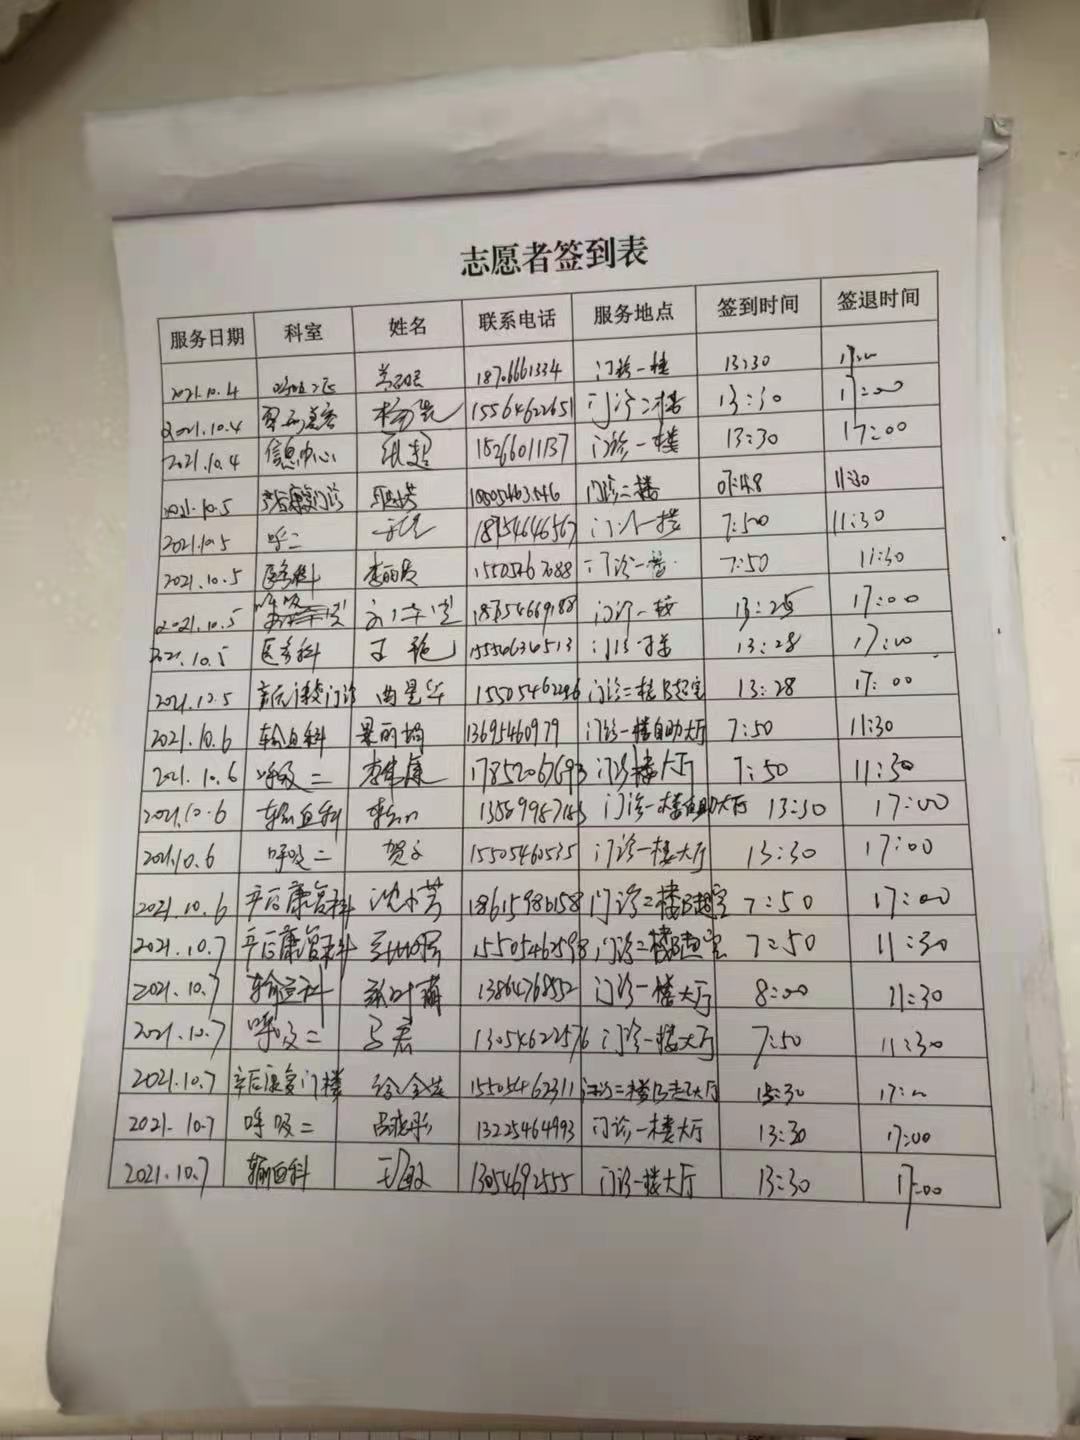 志愿者签到表
服务日期 科室 姓名 联系电话 服务地点 签到时间 签退时间
2021.10.4 18706661334 门诊一楼 13:30
2021.10.4 15564622651 门诊二楼 13:30 17:00
2021.10.4 信息中心 张超 18266011137 门诊一楼 13:30 17:00
2021.10.5 产后康复门诊 门诊二楼 07:48 11:30
2021.10.5 呼二 18754646567 7:50 11:30
2021.10.5 医务科 李丽 门诊一楼 7:50 11:30
2021.10.5 呼吸 18754669188 门诊一楼 13:25 17:00
2021.10.5 医务科 王艳 13:28 17:00
2021.10.5 门诊 15505462246 门诊二楼B超室 13:28 17:00
2021.10.6 输血科 13695460979 门诊一楼自助大厅 7:50 11:30
2021.10.6 呼吸二 李伟康 17852067693 门诊楼大厅 7:50 11:30
2021.10.6 输血科 门诊一楼自助大厅 13:30 17:00
2021.10.6 呼吸二 贺 15505460535 门诊一楼大厅 13:30 17:00
2021.10.6 产后康复科 沈小芳 18615986158 门诊二楼B超室 7:50 17:00
2021.10.7 产后康复科 15505462598 门诊二楼B超室 7:50 11:30
2021.10.7 输血科 13864768552 门诊一楼大厅 8:00 11:30
2021.10.7 呼吸二 马宏 13054622576 门诊一楼大厅 7:50 11:30
2021.10.7 产后康复门 15505462311 13:30
2021.10.7 呼吸二 13225464993 门诊一楼大厅 13:30 17:00
2021.10.7 输血科 王敏 13054692555 门诊一楼大厅 13:30 17:00